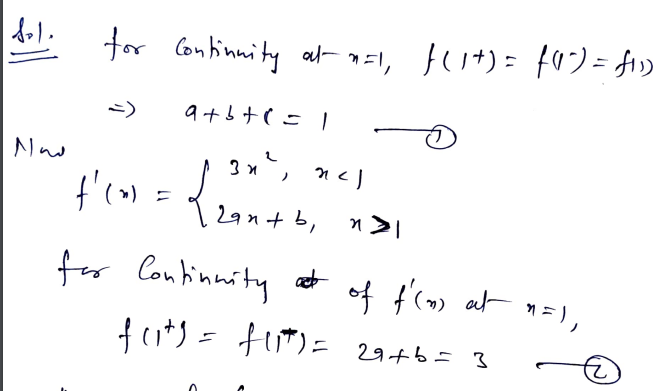 Sol. for Continuity at x=1, f(1⁺) = f(1⁻) = f(1)
⇒ a+b+c = 1 —①
Now
f'(x) = { 3x², x<1
2ax+b, x>1
for Continuity of f'(x) at x=1,
f(1⁺) = f(1⁻) = 2a+b = 3 —②